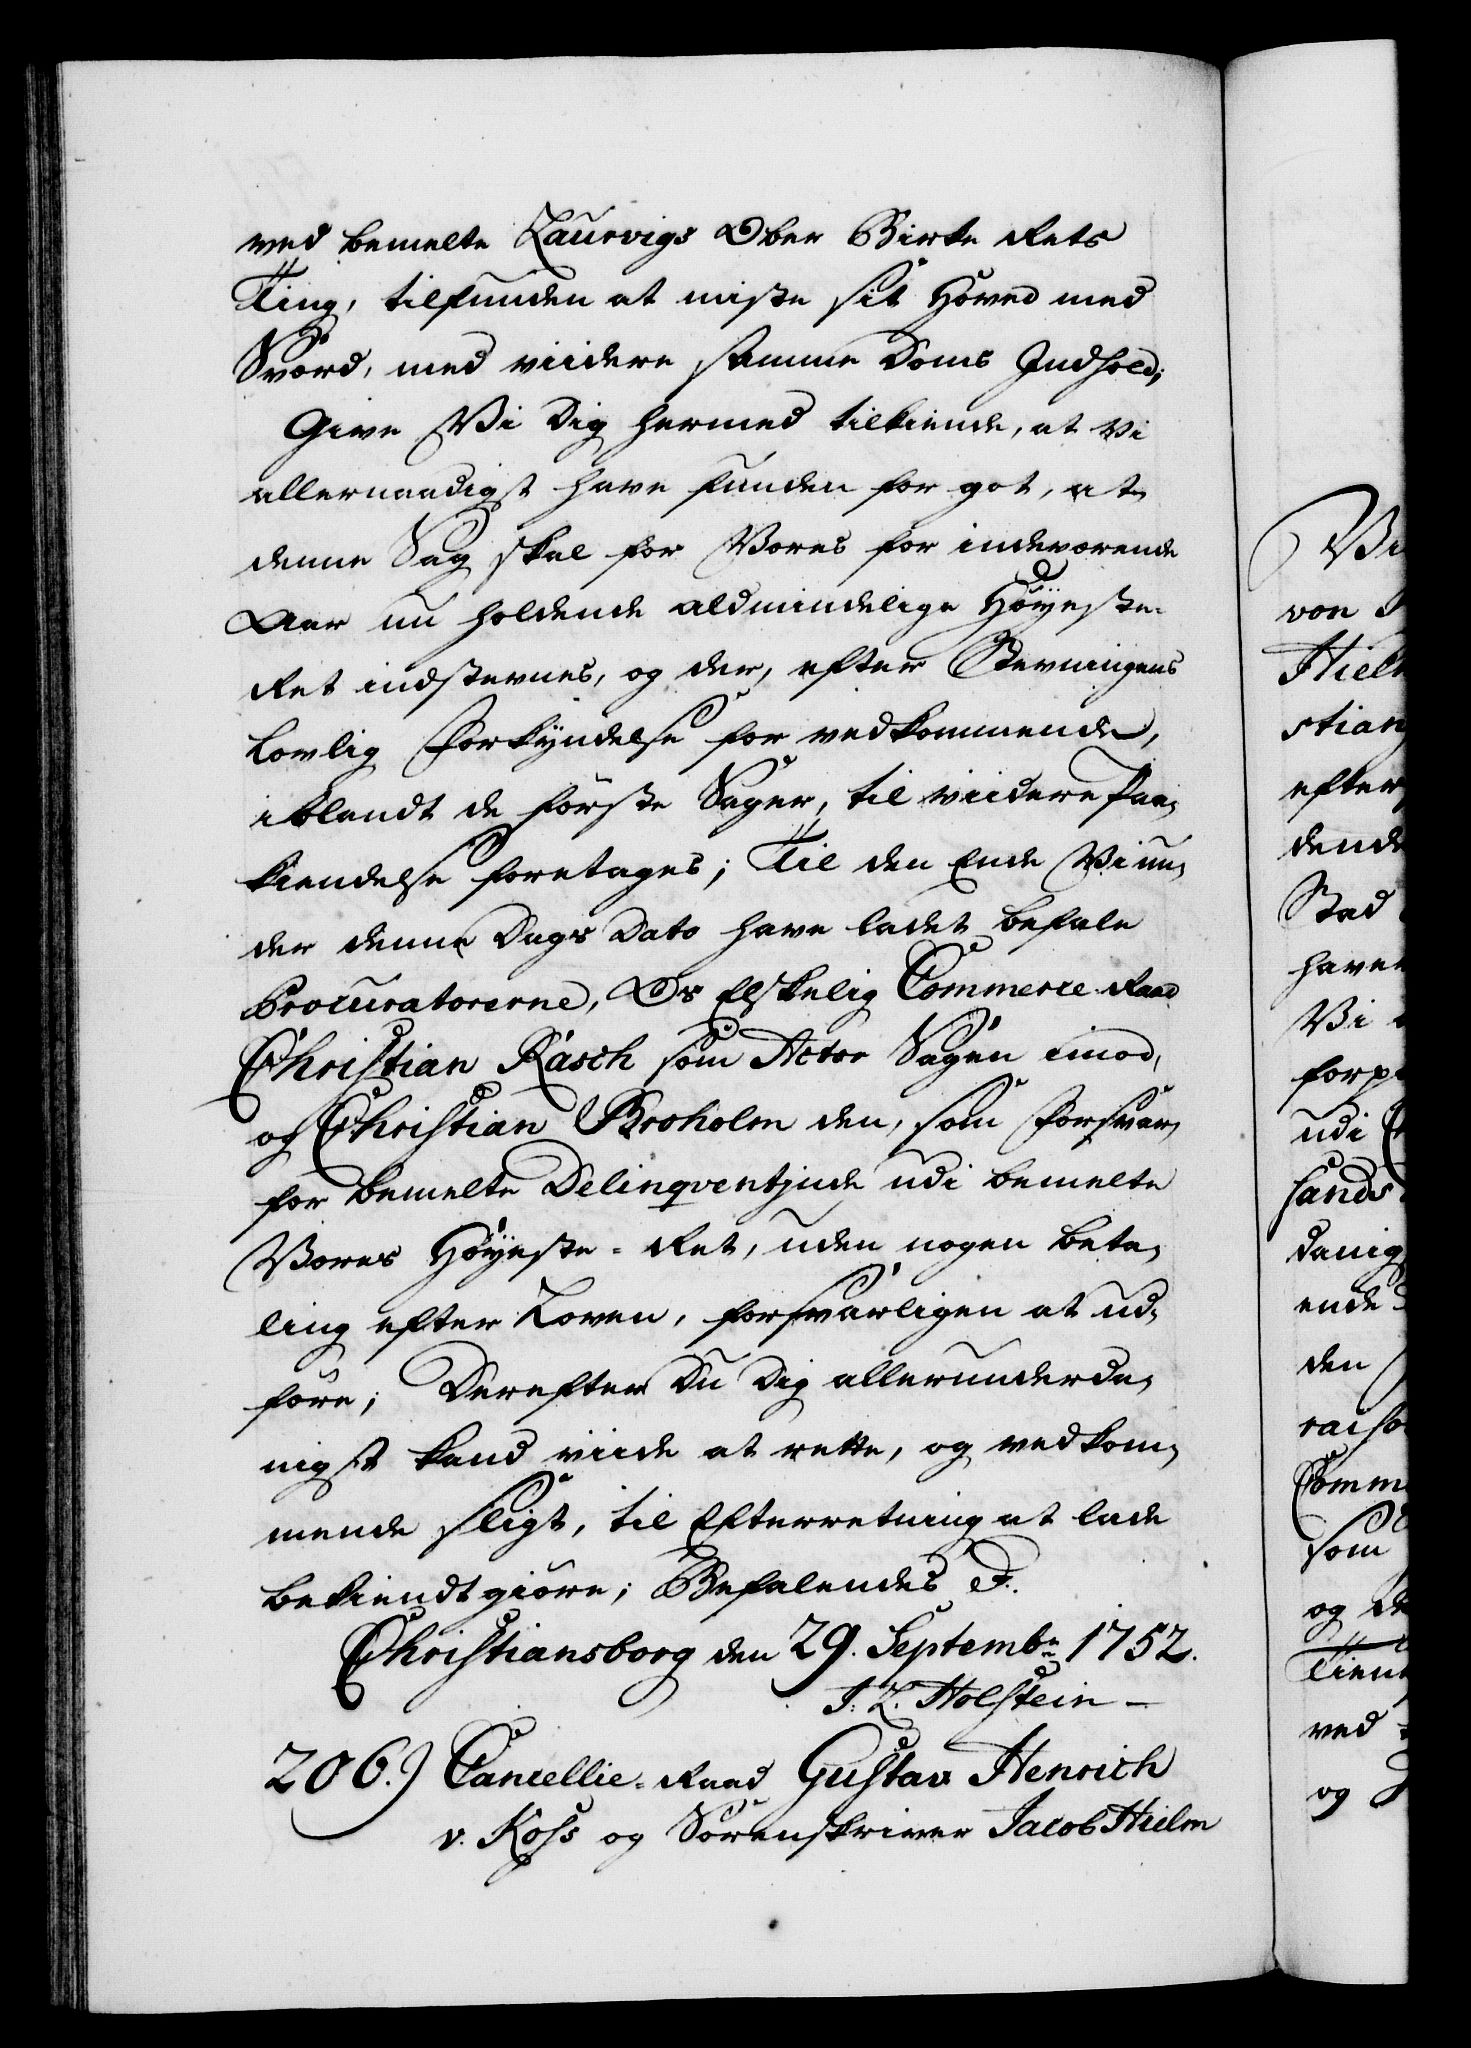 ved bemelte Laurvigs Ober Birke Rets
Ting, tilfunden at miste sit Hoved med
Sværd, med viidere samme Doms Indhold;
Give Vi Dig hermed tilkiende, at Vi
allernaadigst have funden for got, at
denne Sag skal for Vores for indeværende
Aar nu holdende aldmindelige Höyeste-
Ret indstevnes, og der, efter Stevningens
lovlig Forkyndelse for vedkommende,
iblandt de förste Sager, til viidere Paa-
kiendelse foretages; Til den Ende Vi un-
der denne Dags Dato have ladet befale
Procuratorerne, Os Elskelig Commerce-Raad
Christian Räsch som Actor Sagen imod,
og Christian Broholm den, som Forsvar
for bemelte Delinqventjnde udi bemelte
Vores Höyeste-Ret, uden nogen beta-
ling efter Loven, forsvarligen at ud-
före; Derefter Du Dig allerunderda-
nigst kand viide at rette, og vedkom-
mende sligt, til Efterretning at lade
bekiendtgiöre; Befalendes &.
Christiansborg den 29. Septembr 1752.
J. L. Holstein
206.) Cancellie-Raad Gustav Henrich
v. Koss og Sorenskriver Jacob Hielm
Vi
von
Hiel
stian
efter
dende
Stad
have
Vi
forp
udi
sands
danig
ende
den
raiso
Comm
som
og de
Tien
ved
og